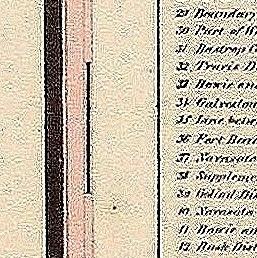 29 Boundary
30 Part of
31 Bastrop
32 Travis D
33 Bowie and
34 Galveston
35 Line betw
36 Fort Bend
37 Navasota
38 Supplem
39 Goliad Dis
40 Navasota
41 Bowie an
42 Rusk Dist